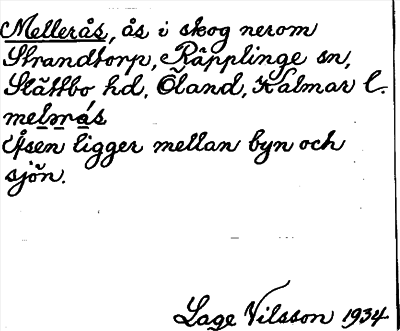 Mellerås, ås i skog nerom
Strandtorp, Räpplinge sn,
Slättbo hd, Öland, Kalmar l.
melǝrás
Åsen ligger mellan byn och
sjön.
Lage Nilsson 1934